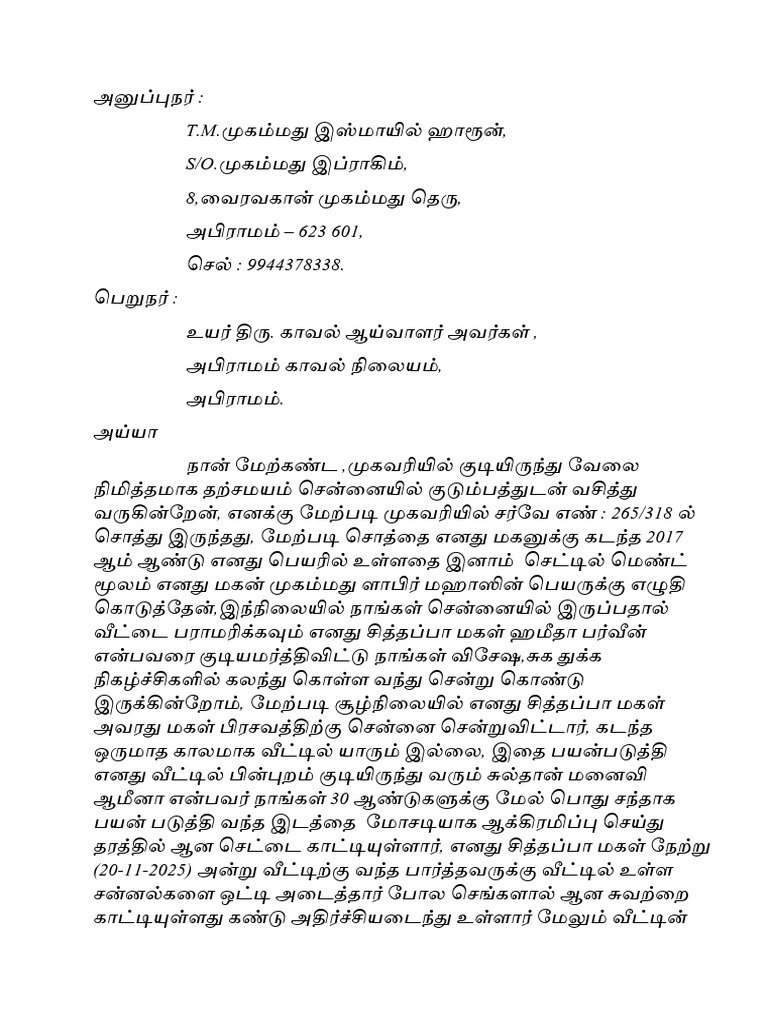 அனுப்புநர் :
T.M.முகம்மது இஸ்மாயில் ஹாரூன்,
S/O.முகம்மது இப்ராகிம்,
8,வைரவகான் முகம்மது தெரு,
அபிராமம் – 623 601,
செல் : 9944378338.
பெறுநர் :
உயர் திரு. காவல் ஆய்வாளர் அவர்கள் ,
அபிராமம் காவல் நிலையம்,
அபிராமம்.
அய்யா
நான் மேற்கண்ட ,முகவரியில் குடியிருந்து வேலை
நிமித்தமாக தற்சமயம் சென்னையில் குடும்பத்துடன் வசித்து
வருகின்றேன், எனக்கு மேற்படி முகவரியில் சர்வே எண் : 265/318 ல்
சொத்து இருந்தது, மேற்படி சொத்தை எனது மகனுக்கு கடந்த 2017
ஆம் ஆண்டு எனது பெயரில் உள்ளதை இனாம் செட்டில் மெண்ட்
மூலம் எனது மகன் முகம்மது ளாபிர் மஹாஸின் பெயருக்கு எழுதி
கொடுத்தேன்,இந்நிலையில் நாங்கள் சென்னையில் இருப்பதால்
வீட்டை பராமரிக்கவும் எனது சித்தப்பா மகள் ஹமீதா பர்வீன்
என்பவரை குடியமர்த்திவிட்டு நாங்கள் விசேஷ,சுக துக்க
நிகழ்ச்சிகளில் கலந்து கொள்ள வந்து சென்று கொண்டு
இருக்கின்றோம், மேற்படி சூழ்நிலையில் எனது சித்தப்பா மகள்
அவரது மகள் பிரசவத்திற்கு சென்னை சென்றுவிட்டார், கடந்த
ஒருமாத காலமாக வீட்டில் யாரும் இல்லை, இதை பயன்படுத்தி
எனது வீட்டில் பின்புறம் குடியிருந்து வரும் சுல்தான் மனைவி
ஆமீனா என்பவர் நாங்கள் 30 ஆண்டுகளுக்கு மேல் பொது சந்தாக
பயன் படுத்தி வந்த இடத்தை மோசடியாக ஆக்கிரமிப்பு செய்து
தரத்தில் ஆன செட்டை காட்டியுள்ளார், எனது சித்தப்பா மகள் நேற்று
(20-11-2025) அன்று வீட்டிற்கு வந்த பார்த்தவருக்கு வீட்டில் உள்ள
சன்னல்களை ஒட்டி அடைத்தார் போல செங்களால் ஆன சுவற்றை
காட்டியுள்ளது கண்டு அதிர்ச்சியடைந்து உள்ளார் மேலும் வீட்டின்